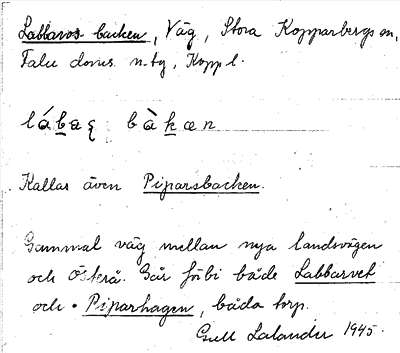 Labbaros backen, Väg, Stora Kopparbergs sn,
Falu doms. n. tg, Koppl.
lábaʂ bàkæn
Kallas även Piparsbacken.
Gammal väg mellan nya landsvägen
och Österå. Går förbi både Labbarvet
och Piparhagen, båda torp.
Gull Lalander 1945.